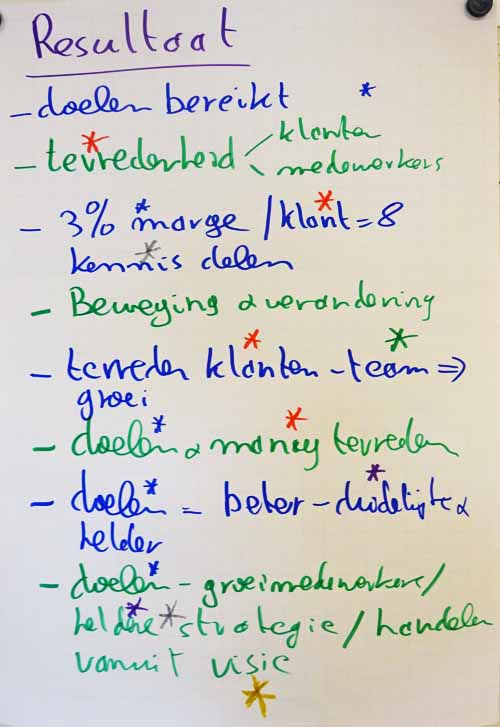 Resultaat
- doelen bereikt *
- tevredenheid < klanten
medewerkers
- 3% marge / klant = 8
kennis delen
- Beweging & verandering
- tevreden klanten - team ⇒
groei
- doelen & money tevreden
- doelen = beter - duidelijke &
helder
- doelen - groei medewerkers /
heldere strategie / handelen
vanuit visie